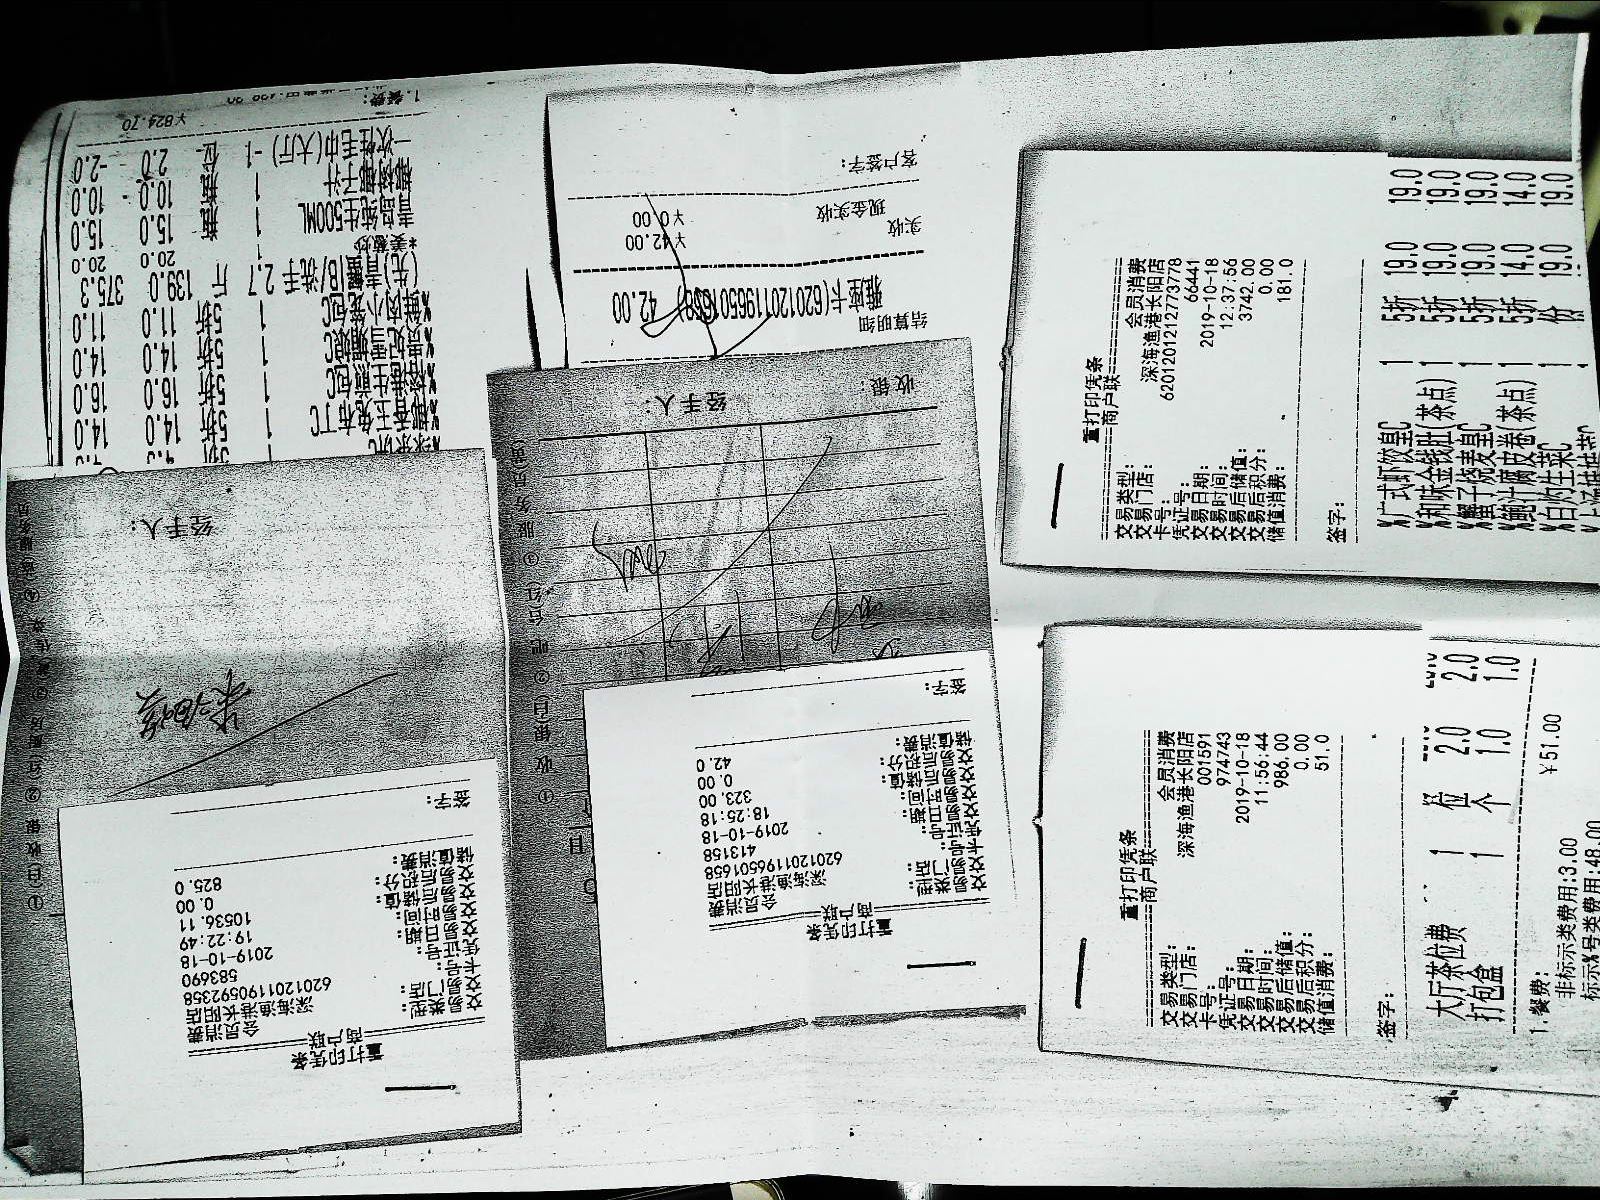 1.餐费:
¥824.70
一次性毛巾(大厅) -1 位 2.0 -2.0
椰树椰子汁 1 瓶 10.0 10.0
青岛纯生500ML 1 瓶 15.0 15.0
*姜葱炒 1 20.0 20.0
(先)青蟹|B/洗手 2.7 斤 139.0 375.3
%鲜肉小笼包C 1 5折 11.0 11.0
1 5折 14.0 14.0
1 5折 16.0 16.0
%椰香玉兔布丁C 1 5折 14.0 14.0
经手人:
重打印凭条
商户联
交易类型: 会员消费
交易门店: 深海渔港长阳店
卡号: 6201201190592358
凭证号: 583690
交易日期: 2019-10-18
交易时间: 19:22:49
交易后储值: 10536.11
交易后积分: 0.00
储值消费: 825.0
签字:
客户签字:
现金实收 ¥0.00
实收 ¥42.00
雅座卡(6201201196501658) 42.00
结算明细
收银: 经手人:
重打印凭条
商户联
交易类型: 会员消费
交易门店: 深海渔港长阳店
卡号: 6201201196501658
凭证号: 413158
交易日期: 2019-10-18
交易时间: 18:25:18
交易后储值: 323.00
交易后积分: 0.00
储值消费: 42.0
签字:
重打印凭条
商户联
交易类型: 会员消费
交易门店: 深海渔港长阳店
卡号: 6201201212773778
凭证号: 66441
交易日期: 2019-10-18
交易时间: 12:37:56
交易后储值: 3742.00
交易后积分: 0.00
储值消费: 181.0
签字:
%广式虾饺皇C 1 5折 19.0 19.0
%和味金钱肚(茶点) 1 5折 19.0 19.0
%蟹子烧麦皇C 1 5折 19.0 19.0
%鲍汁腐皮卷(茶点) 1 5折 14.0 14.0
%白灼生菜C 1 份 19.0 19.0
重打印凭条
商户联
交易类型: 会员消费
交易门店: 深海渔港长阳店
卡号: 001591
凭证号: 974743
交易日期: 2019-10-18
交易时间: 11:56:44
交易后储值: 986.00
交易后积分: 0.00
储值消费: 51.0
签字:
大厅茶位费 1 位 2.0 2.0
打包盒 1 个 1.0 1.0
¥51.00
1.餐费:
非标示类费用:3.00
标示%号类费用:48.00